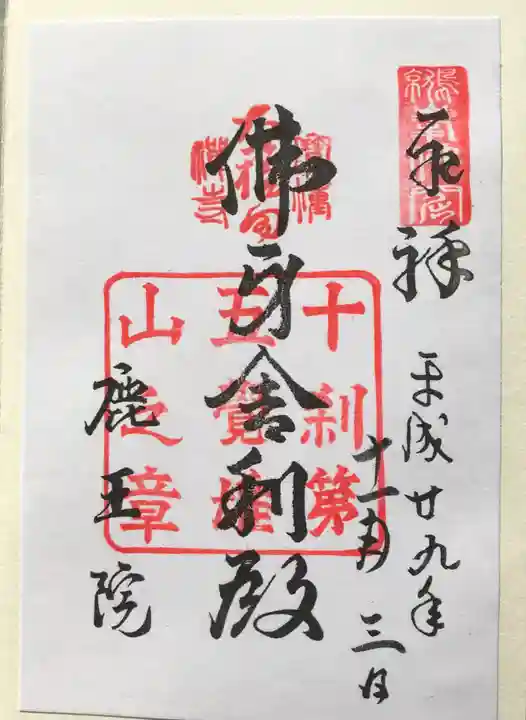 奉拝
平成廿九年
十一月三日
佛身舎利殿
鹿王院
十刹第
五覚雄
山之章